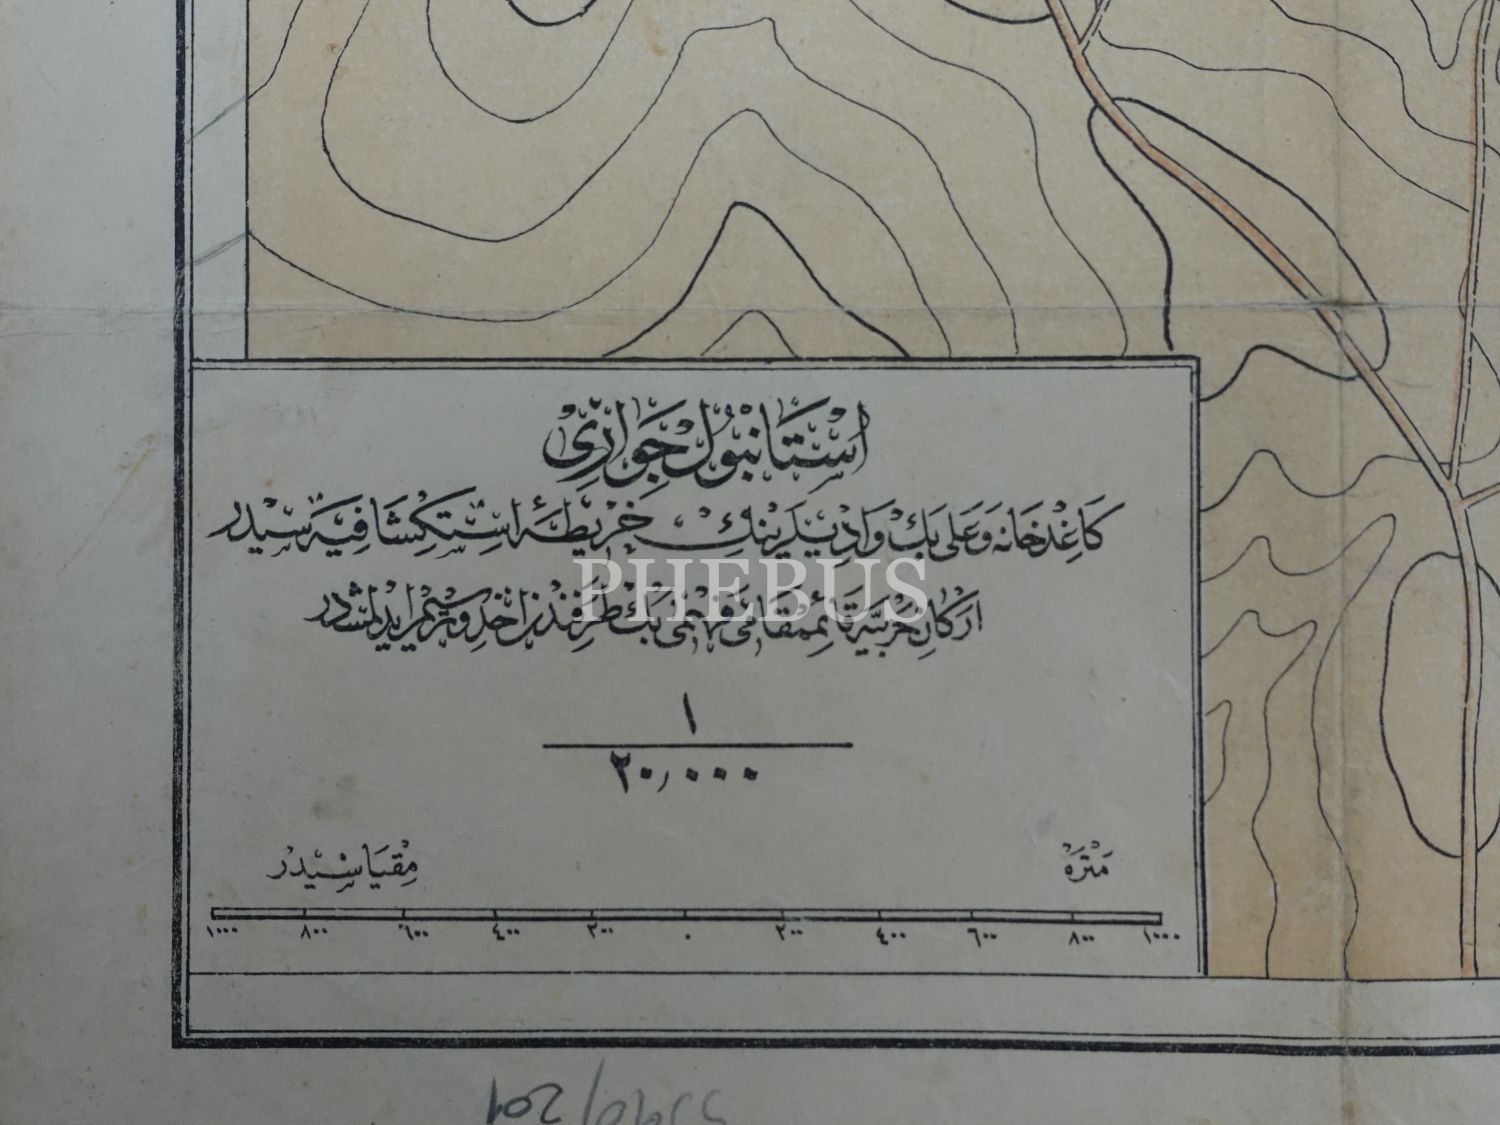 استانبول جوارى
كاغدخانه و على بك واديلرينك خريطۀ استكشافيه سيدر
اركان حربيه قائممقامى فهمى بك طرفندن اخذ و ترسيم ايدلمشدر
PHEBUS
١
٢٠,٠٠٠
متره مقياسيدر
١٠٠٠ ٨٠٠ ٦٠٠ ٤٠٠ ٢٠٠ ٠ ٢٠٠ ٤٠٠ ٦٠٠ ٨٠٠ ١٠٠٠